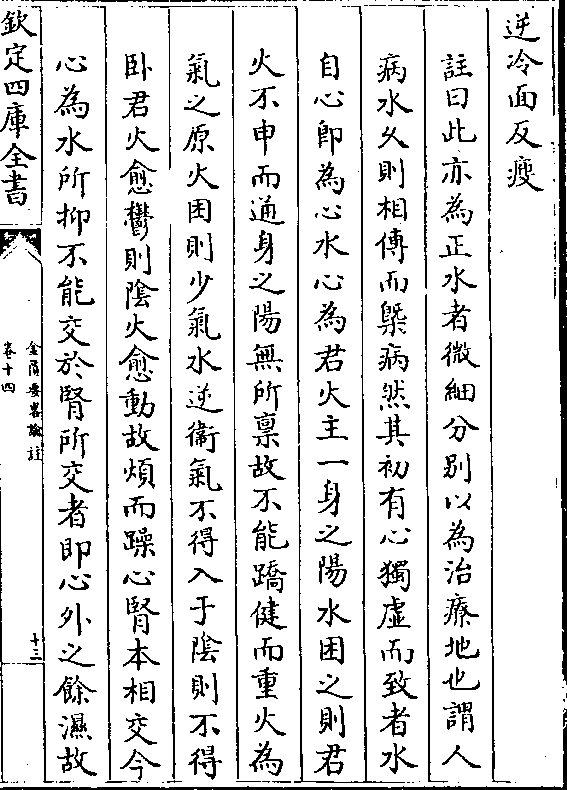 逆冷面反瘦
註曰此亦為正水者微細分别以為治療地也謂人
病水乆則相傳而槩病然其初有心獨虛而致者水
自心卽為心水心為君火主一身之陽水困之則君
火不申而通身之陽無所禀故不能蹻健而重火為
氣之原火困則少氣水逆衞氣不得入于陰則不得
卧君火愈鬱則陰火愈動故煩而躁心腎本相交今
心為水所抑不能交於腎所交者即心外之餘濕故
欽定四庫全書
金匱要畧論註
卷十四
十三